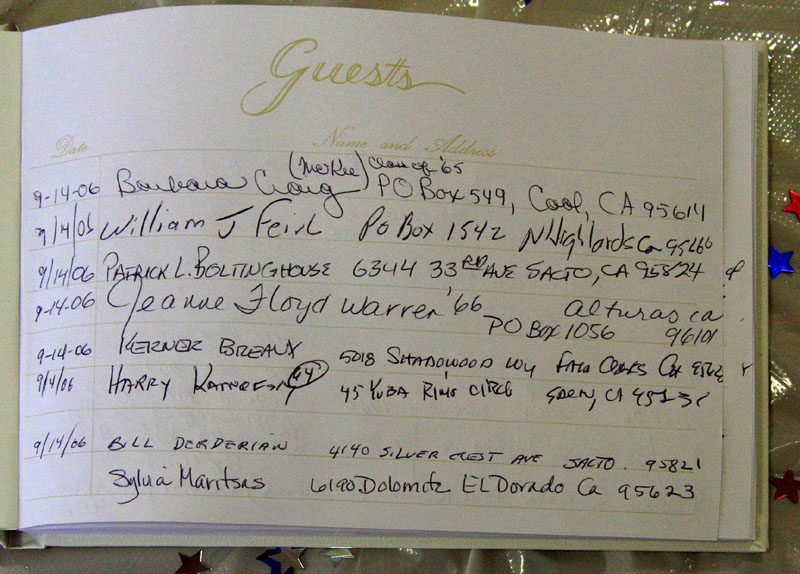 Guests
Date Name and Address
9-14-06 Barbara Craig (McKee) Class of '65 PO Box 549, Cool, CA 95614
9/14/06 William J Feirl PO Box 1542 N Highlands Ca 95660
9/14/06 PATRICK L. BOLTINGHOUSE 6344 33RD AVE SACTO, CA 95824
9-14-06 Jeanne Floyd Warren '66 PO Box 1056 alturas ca 96101
9-14-06 KERNER BREAUX 5018 SHADOWOOD WY FAIR OAKS CA
9/14/06 HARRY 64 45 YUBA RING CIRCLE CA
9/14/06 BILL DERDERIAN 4140 SILVER CREST AVE SACTO. 95821
Sylvia Maritsas 6190 Dolomite El Dorado Ca 95623